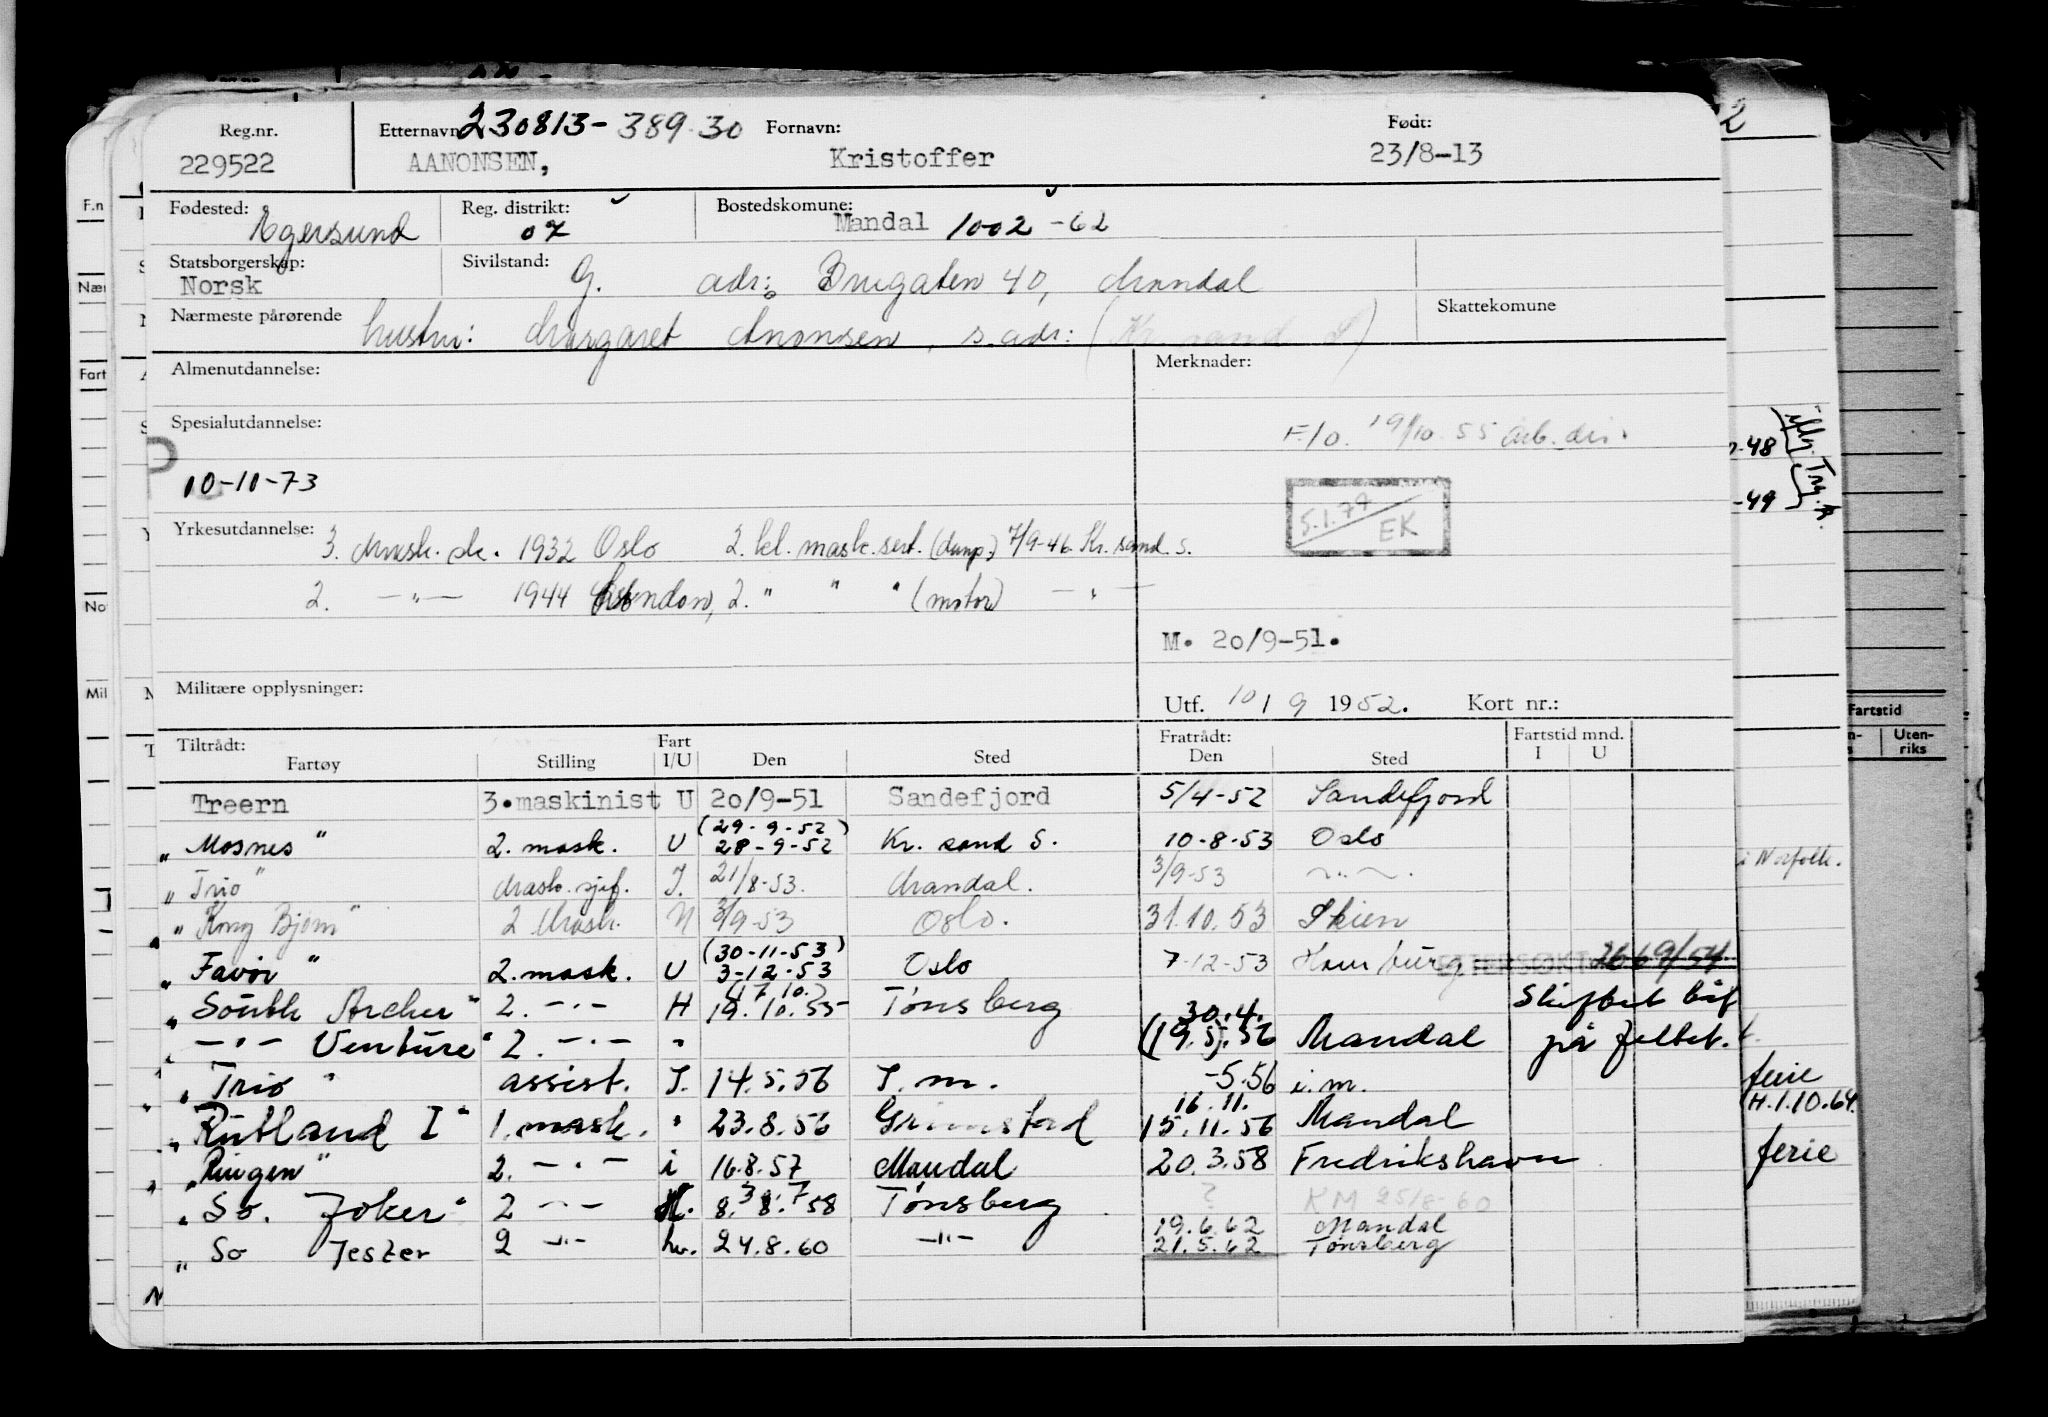 Reg.nr. Etternavn 230813-389.30 Fornavn: Født:
229522 AANONSEN, Kristoffer 23/8-13
Fødested: Egersund Reg. distrikt: 07 Bostedskomune: Mandal 1002-62
Statsborgerskap: Norsk Sivilstand: G. adr: Brugaten 40, Mandal
Nærmeste pårørende hustru: Margaret Anonsen, s. adr: (Kr.sand S) Skattekomune
Almenutdannelse: Merknader:
Spesialutdannelse: F/o. 19/10.55 Arb. dir.
10-11-73
5.1.79
EK
Yrkesutdannelse: 3. Mask. sk. 1932 Oslo 2. kl. mask. sert. (damp.) 7/9-46. Kr. sand. S.
2. —"— 1944 London, 2. " " " (motor) — " —
M. 20/9-51.
Militære opplysninger: Utf. 10/9 1952. Kort nr.:
Tiltrådt: Fart Fratrådt: Fartstid mnd.
Fartøy Stilling I/U Den Sted Den Sted I U
Treern 3.maskinist U 20/9-51 Sandefjord 5/4-52 Sandefjord
"Mosnes" 2. mask. U (29-9-52) 28-9-52 Kr. sand S. 10-8-53 Oslo
"Trio" Mask. sjef. I. 21/8-53. Mandal. 3/9-53 —"—.
"Kong Bjørn" 2 Mask. N 3/9-53 Oslo. 31.10.53 Skien
"Favør" 2. mask. U (30-11-53) 3-12-53 Oslo 7-12-53 Hamburg
"South Archer" 2. —"— H (17.10.) 19.10.55 Tønsberg Skiftet båt
—"— Venture" 2. —"— " 30.4. (19.5).56 Mandal på feltet.
"Trio" assist. I. 14.5.56 I. m. -5.56 i. m.
"Rutland I" 1. mask. " 23.8.56 Grimstad 16.11. 15.11.56 Mandal
"Ringen" 2. —"— i 16.8.57 Mandal 20.3.58 Fredrikshavn
"So. Joker" 2 —"— H. 8.8.58 Tønsberg ? KM 25/8-60
"So Jester 2 —"— hv. 24.8.60 —"— 19.6.62 Mandal
21.5.62 Tønsberg
F.n
Fart
No
Mil
-48
-49
i Norfolk.
ferie
H.1.10.64.
ferie
Fartstid
Uten-
riks